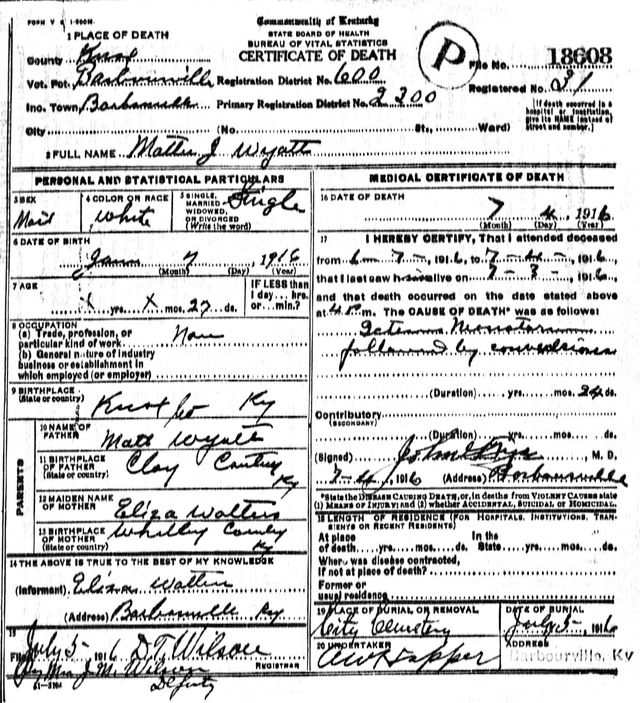 FORM V S 1-500M.
Commonwealth of Kentucky
STATE BOARD OF HEALTH
BUREAU OF VITAL STATISTICS
CERTIFICATE OF DEATH
P
1 PLACE OF DEATH
County Knox
File No. 18608
Vot. Pct. Barbourville Registration District No. 600
Registered No. 31
Inc. Town Barbourville Primary Registration District No. 2300
[If death occurred in a hospital or institution, give its NAME instead of street and number.]
City (No. St., Ward)
2 FULL NAME Mattie J Wyatt
PERSONAL AND STATISTICAL PARTICULARS
3 SEX
4 COLOR OR RACE White
5 SINGLE, MARRIED, WIDOWED, OR DIVORCED (Write the word) Single
6 DATE OF BIRTH
7, 1916
(Month) (Day) (Year)
7 AGE
x yrs. x mos. 27 ds.
IF LESS than 1 day... hrs. or... min.?
8 OCCUPATION
(a) Trade, profession, or particular kind of work None
(b) General nature of industry business or establishment in which employed (or employer)
9 BIRTHPLACE
(State or country) Knox Co Ky
PARENTS
10 NAME OF FATHER Matt Wyatt
11 BIRTHPLACE OF FATHER
(State or country) Clay County Ky
12 MAIDEN NAME OF MOTHER Eliza Walters
13 BIRTHPLACE OF MOTHER
(State or country) Whitley County Ky
14 THE ABOVE IS TRUE TO THE BEST OF MY KNOWLEDGE
(Informant) Eliza
(Address) Barbourville Ky
15
Filed July 5- 1916 D.T. Wilson
REGISTRAR
By Mrs J. M. Wilson
Deputy
MEDICAL CERTIFICATE OF DEATH
16 DATE OF DEATH
7 4, 1916
(Month) (Day) (Year)
17 I HEREBY CERTIFY, That I attended deceased
from 7-, 1916, to 7-4-, 1916,
that I last saw h alive on 7-3-, 1916
and that death occurred on the date stated above
at m. The CAUSE OF DEATH* was as follows:
followed by convulsions
(Duration) yrs. mos. 24 ds.
Contributory
(SECONDARY)
(Duration) yrs. mos. ds.
(Signed) John, M. D.
7-4, 1916 (Address) Barbourville
*State the DISEASE CAUSING DEATH, or, in deaths from VIOLENT CAUSES state
(1) MEANS OF INJURY; and (2) whether ACCIDENTAL, SUICIDAL OR HOMICIDAL.
18 LENGTH OF RESIDENCE (FOR HOSPITALS, INSTITUTIONS, TRANSIENTS OR RECENT RESIDENTS)
At place of death yrs. mos. ds. In the State yrs. mos. ds.
Where was disease contracted,
if not at place of death?
Former or usual residence
19 PLACE OF BURIAL OR REMOVAL
City Cemetery
DATE OF BURIAL
July 5-, 1916
20 UNDERTAKER
ADDRESS
Barbourville, Ky